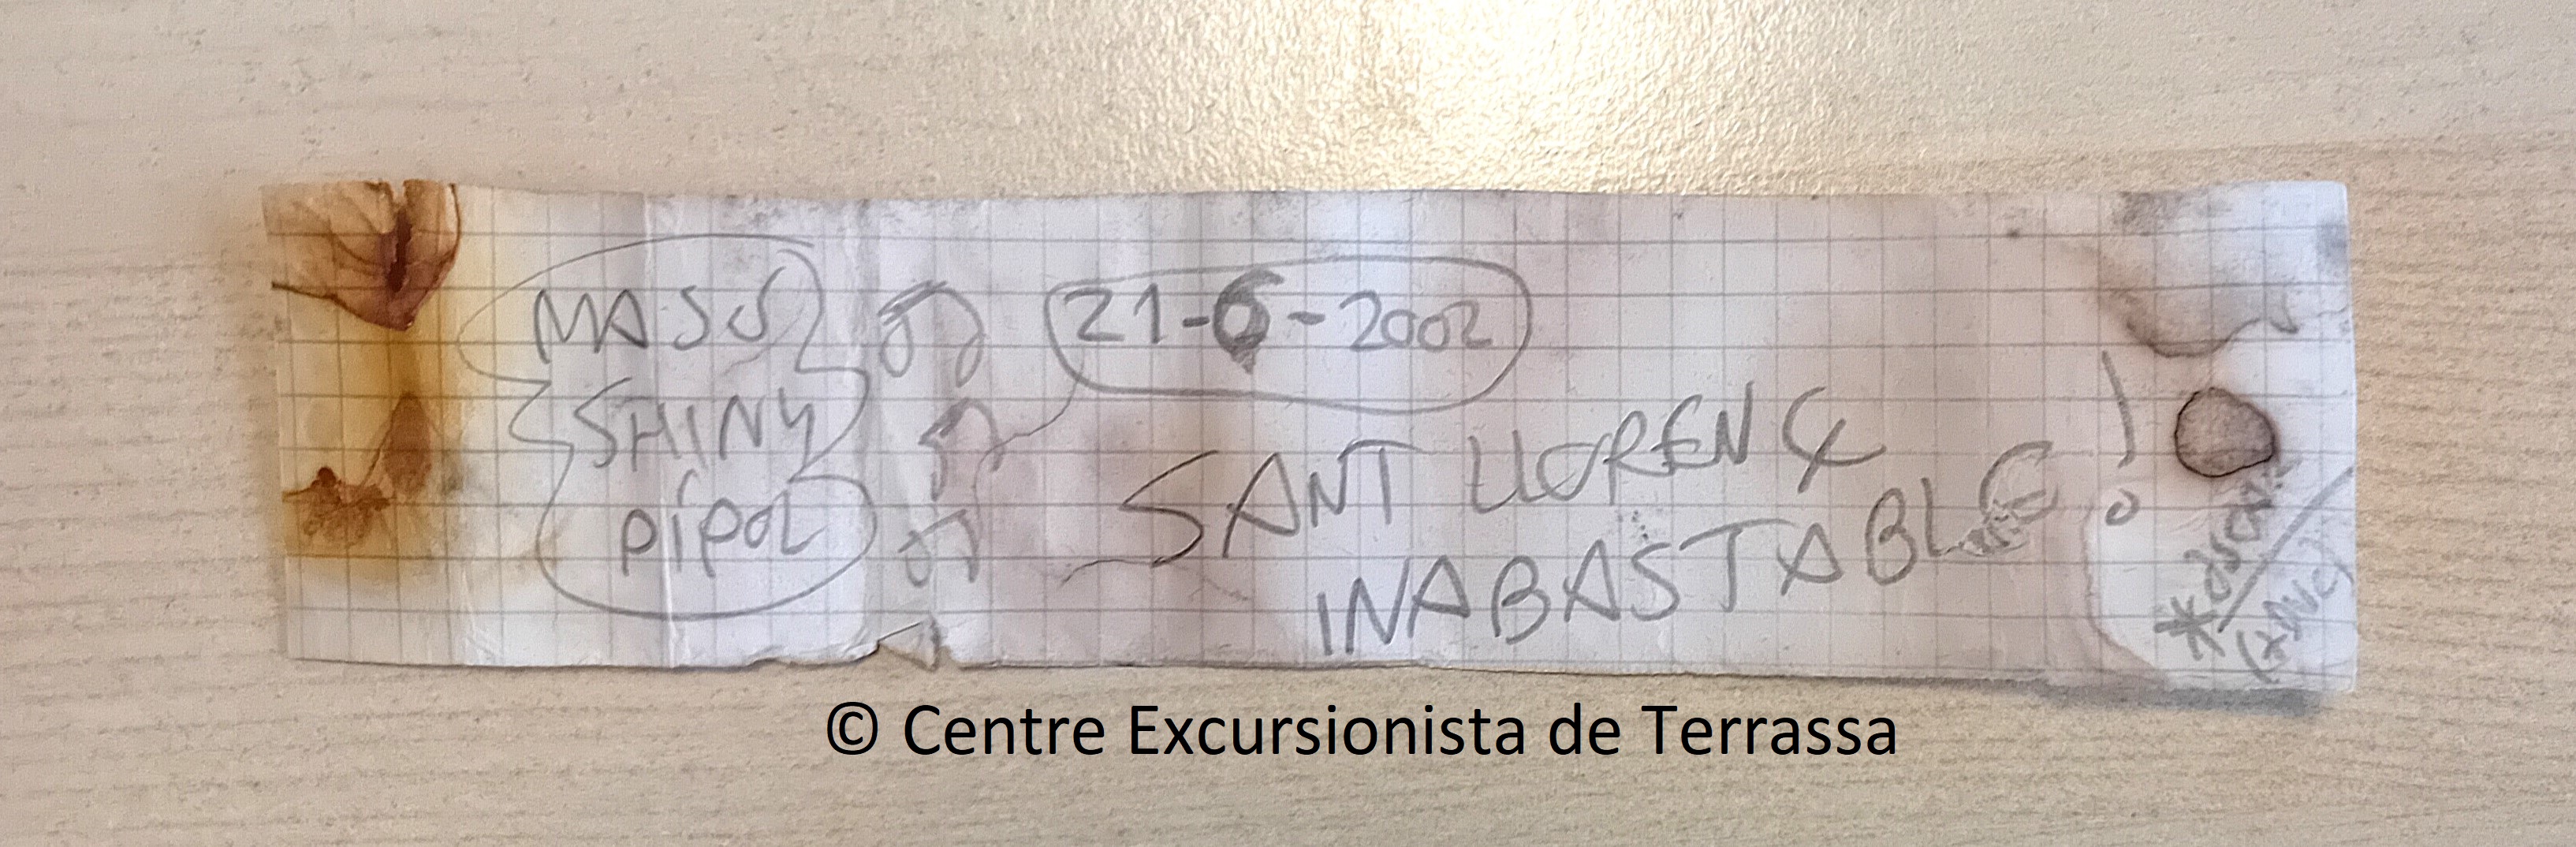 MASS
SHINY
PIPOL
21-6-2002
SANT LLORENÇ
INABASTABLE!
© Centre Excursionista de Terrassa